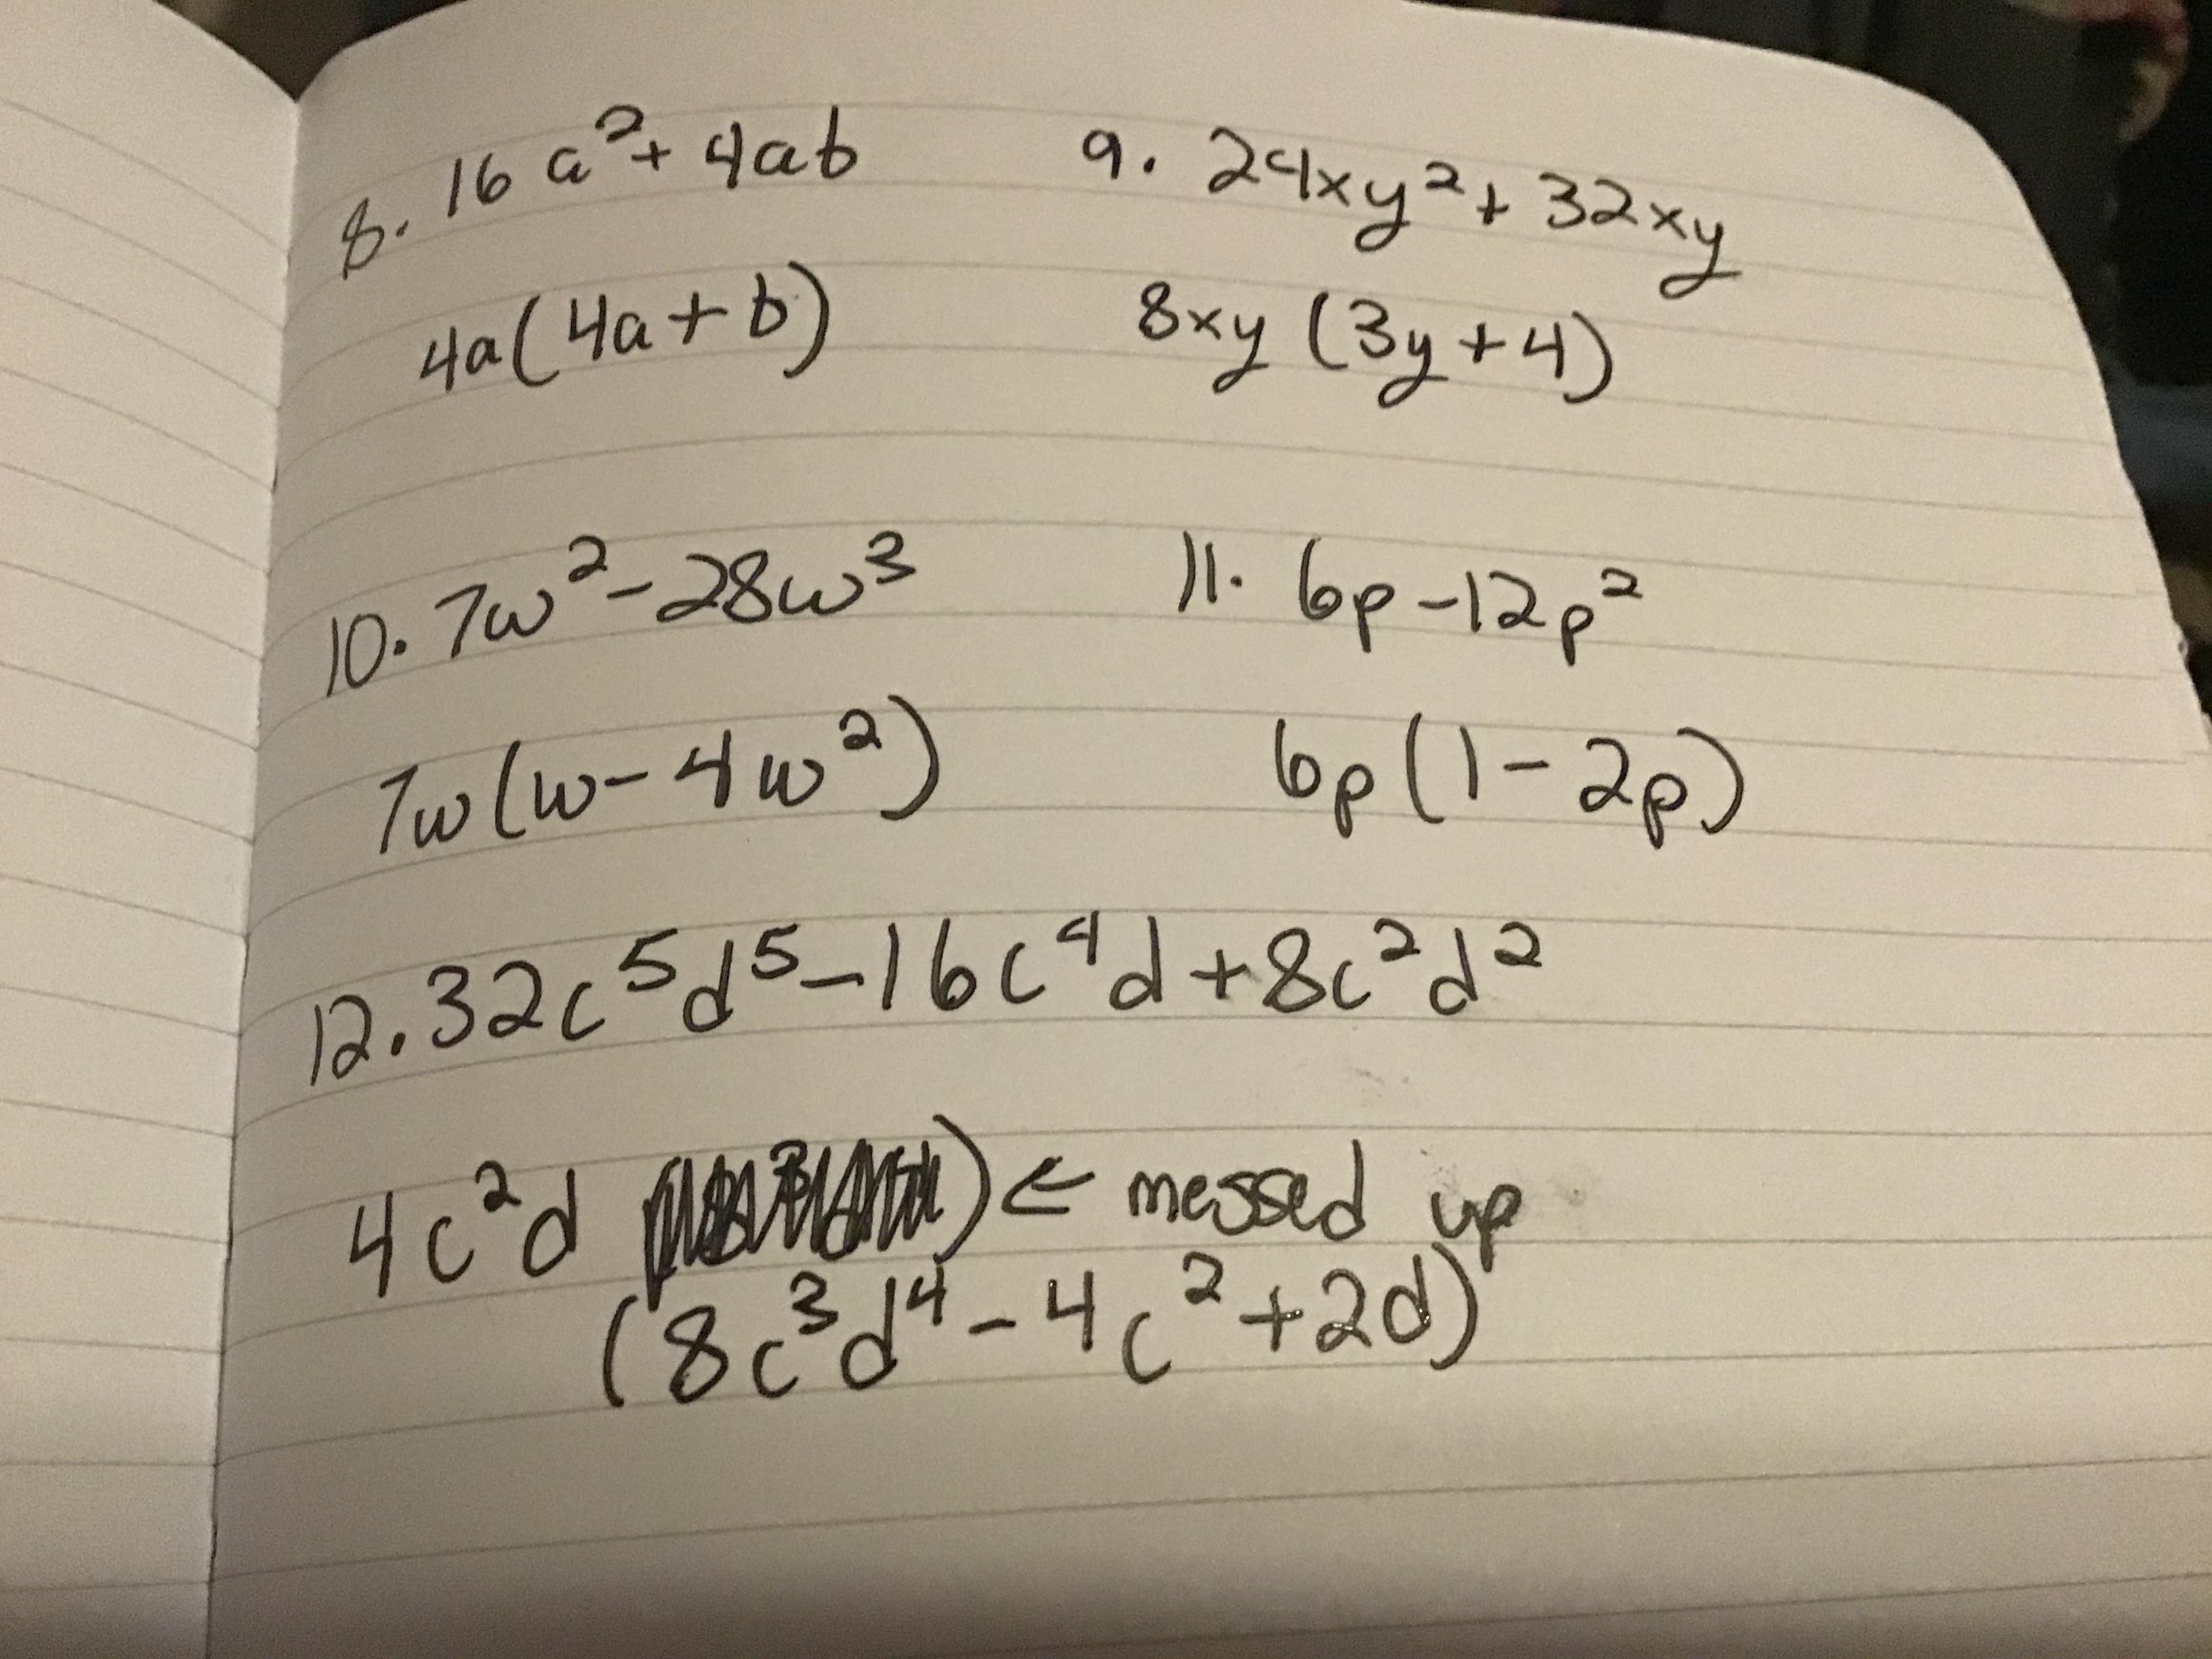 8. 16a²+ 4ab
4a(4a+b)
9. 24xy²+ 32xy
8xy (3y+4)
10. 7w²-28w³
7w(w-4w²)
11. 6p-12p²
6p(1-2p)
12. 32c⁵d⁵-16c⁴d+8c²d²
4c²d ) ← messed up
(8c³d⁴-4c²+2d)